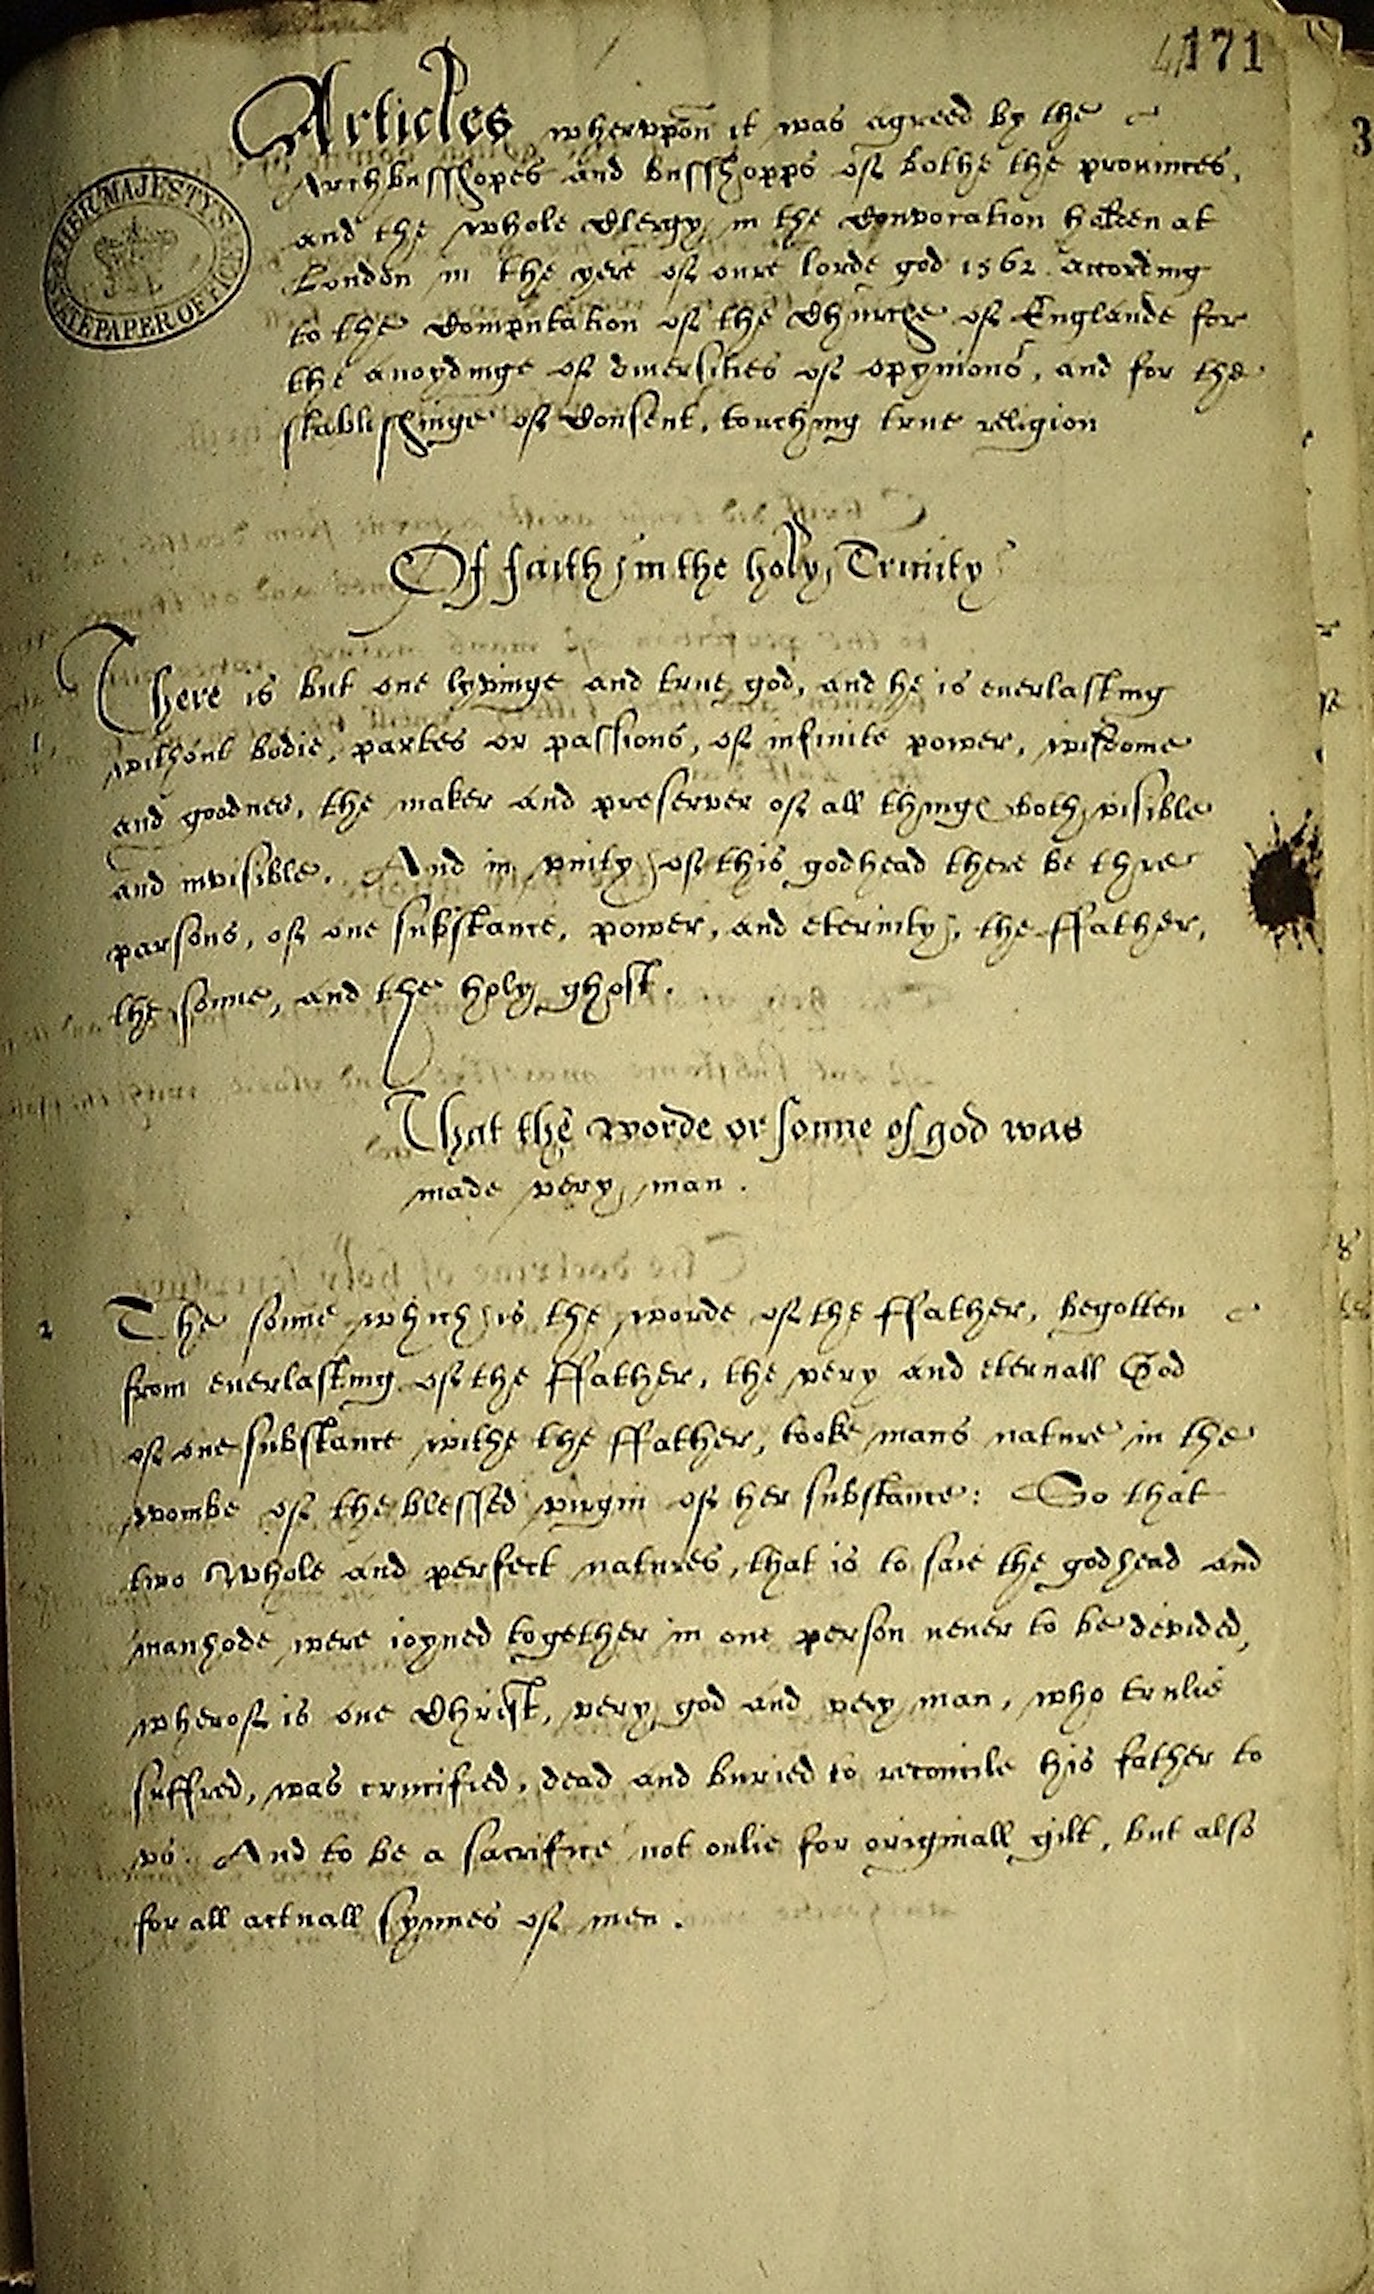 171
Articles whervppon it was agreed by the
Archbusshopes and busshopps of bothe the prouinces,
and the whole Clergy in the Convocation holden at
London in the yere of oure lorde god 1562 according
to the Computation of the Churche of Englande for
the auoydinge of diuersities of opynions, and for the
stablishinge of Consent, touching true religion
HER MAJESTY'S
STATE PAPER OFFICE
Of faith in the holy Trinity
There is but one lyvinge and true god, and he is euerlasting
1,
without bodie, partes or passions, of infinite power, wisdome
and goodnes, the maker and preserver of all things both visible
and invisible. And in vnity of this godhead there be thre
parsons, of one substance, power, and eternity, the ffather,
the sonne, and the holy ghost.
That the worde or sonne of god was
made very man.
2 The sonne which is the worde of the ffather, begotten
from euerlasting of the ffather, the very and eternall God
of one substance withe the ffather, tooke mans nature in the
wombe of the blessed virgin of her substance: So that
two whole and perfect natures, that is to saie the godhead and
manhode were ioyned together in one person neuer to be devided,
wherof is one Christ, very god and very man, who trulie
suffred, was crucified, dead and buried to reconcile his father to
vs. And to be a sacrifice not onlie for originall gilt, but also
for all actuall synnes of men.